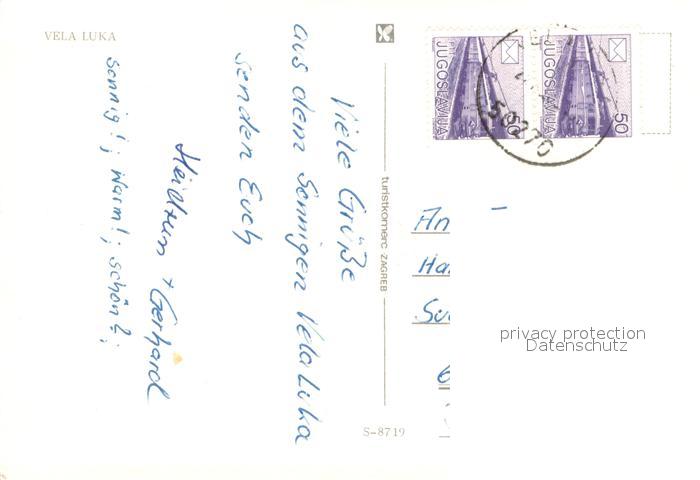 VELA LUKA
Viele Grüße
aus dem Sonnigen Vela Luka
senden Euch
Heidrun + Gerhard
sonnig!; warm!; schön!;
turistkomerc ZAGREB
S-8719
PTT
JUGOSLAVIJA
PTT
JUGOSLAVIJA
50
58270
An
Ha
privacy protection
Datenschutz